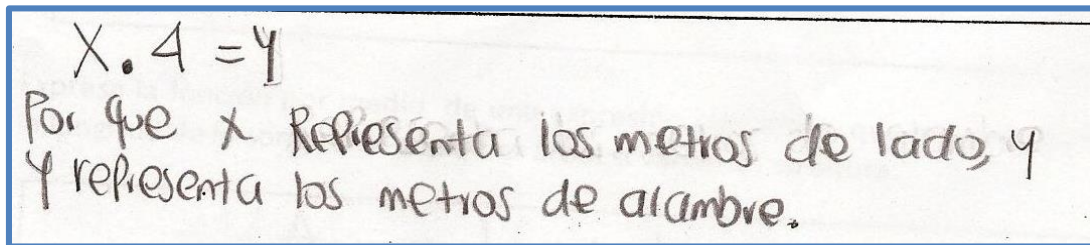 X . 4 = y
Por que x Representa los metros de lado, y
y representa los metros de alambre.